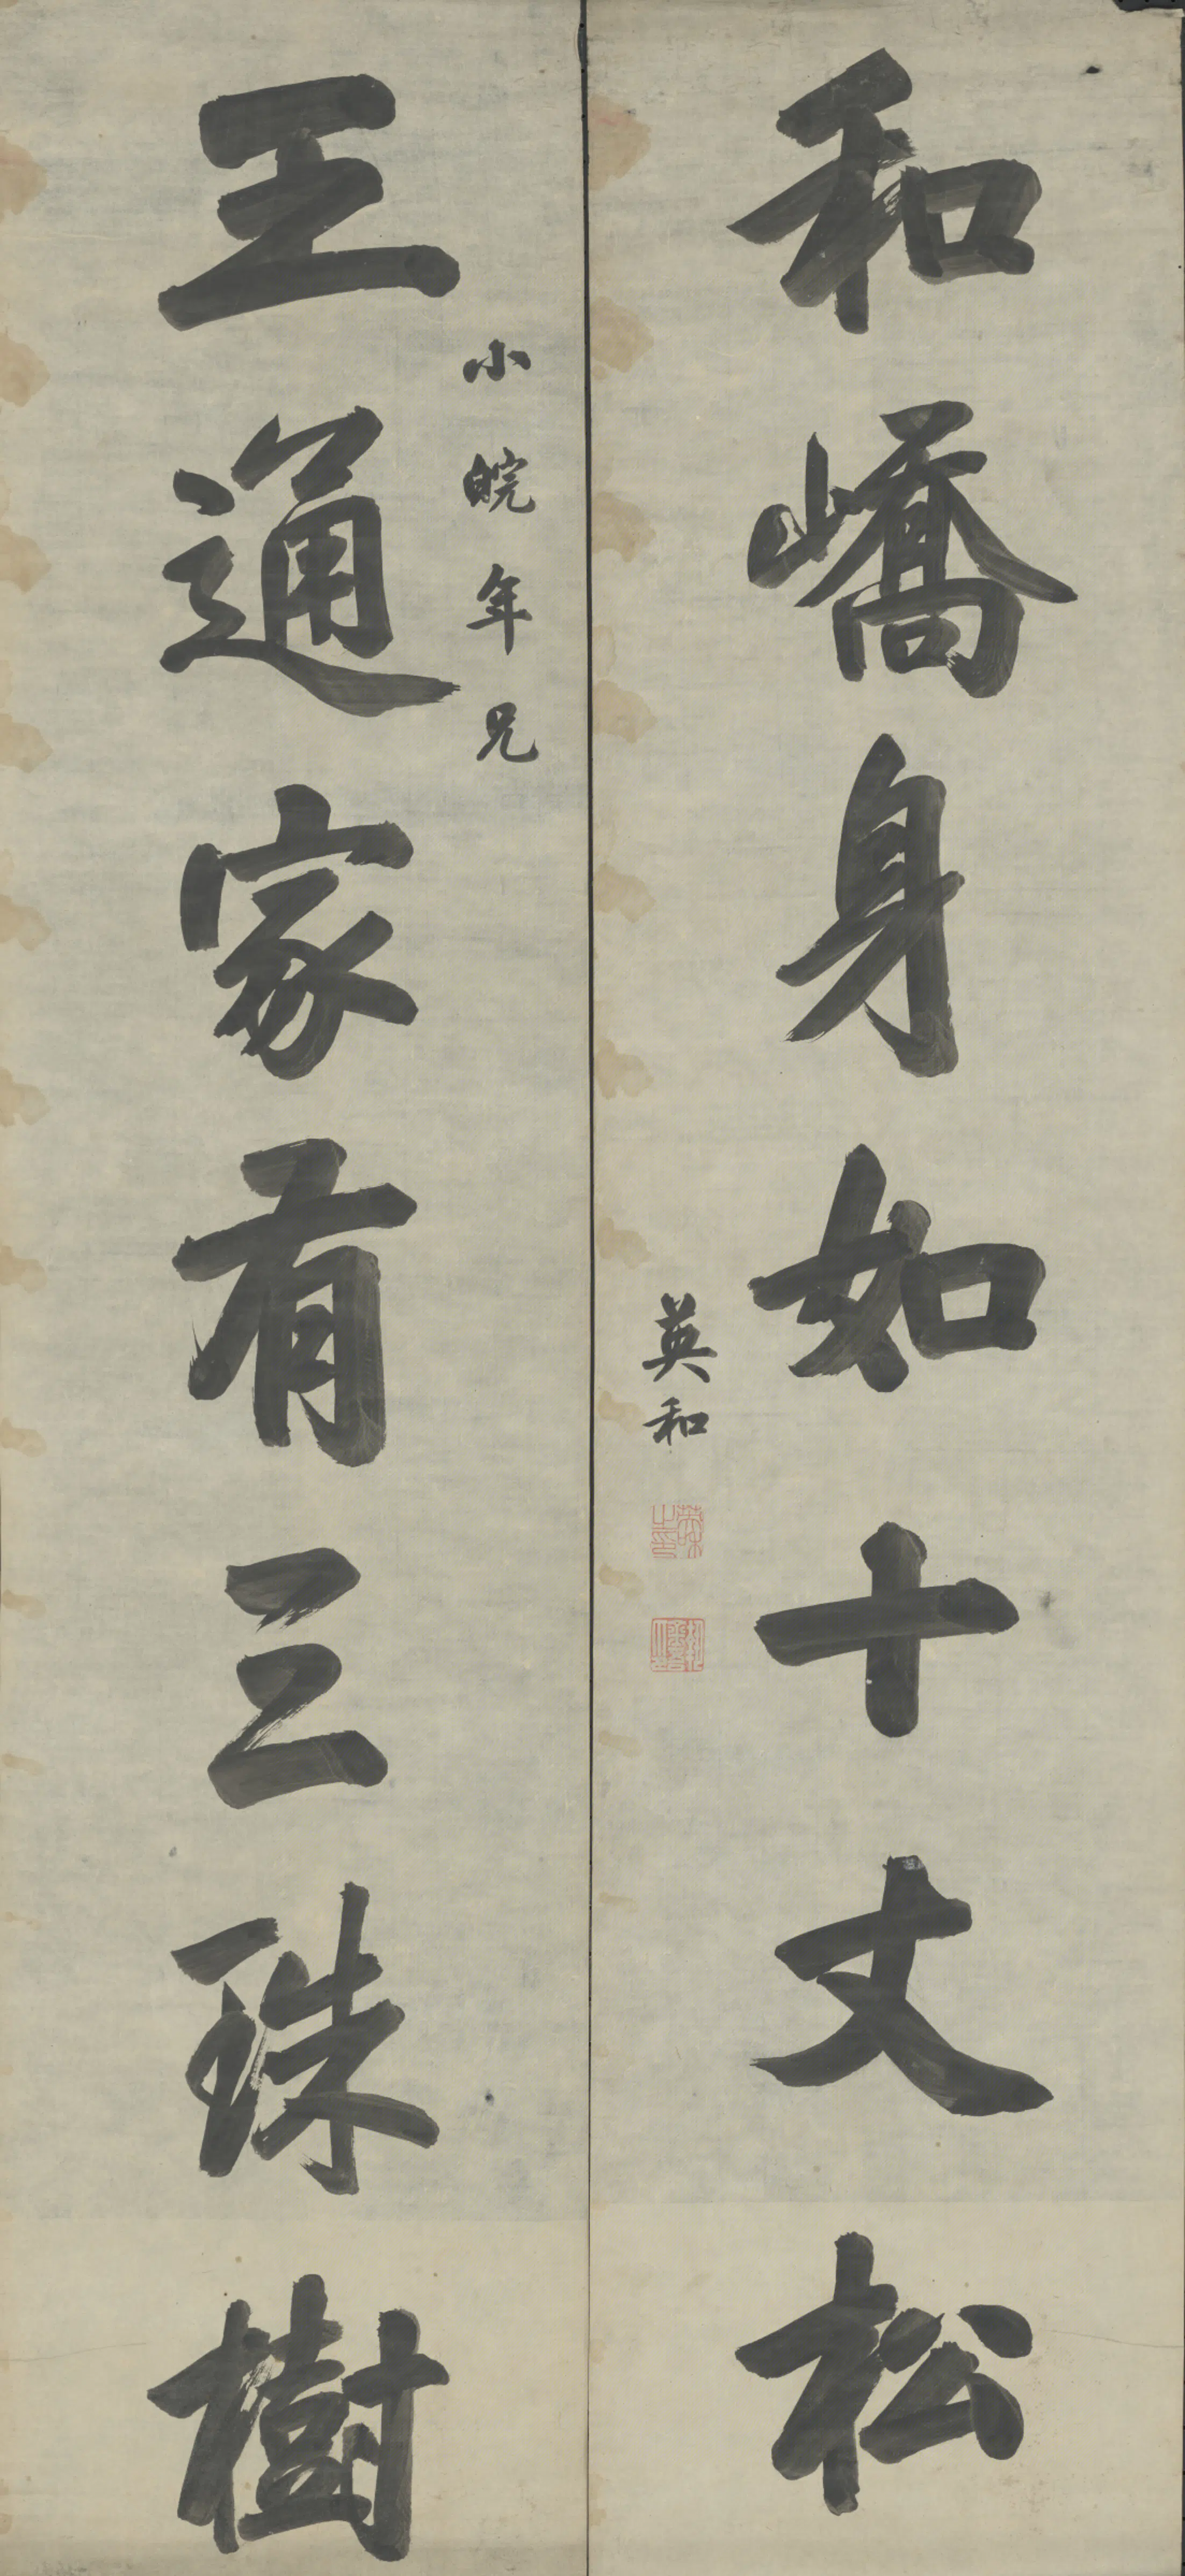 和嶠身如十丈松
英和
小皖年兄
王通家有三珠樹